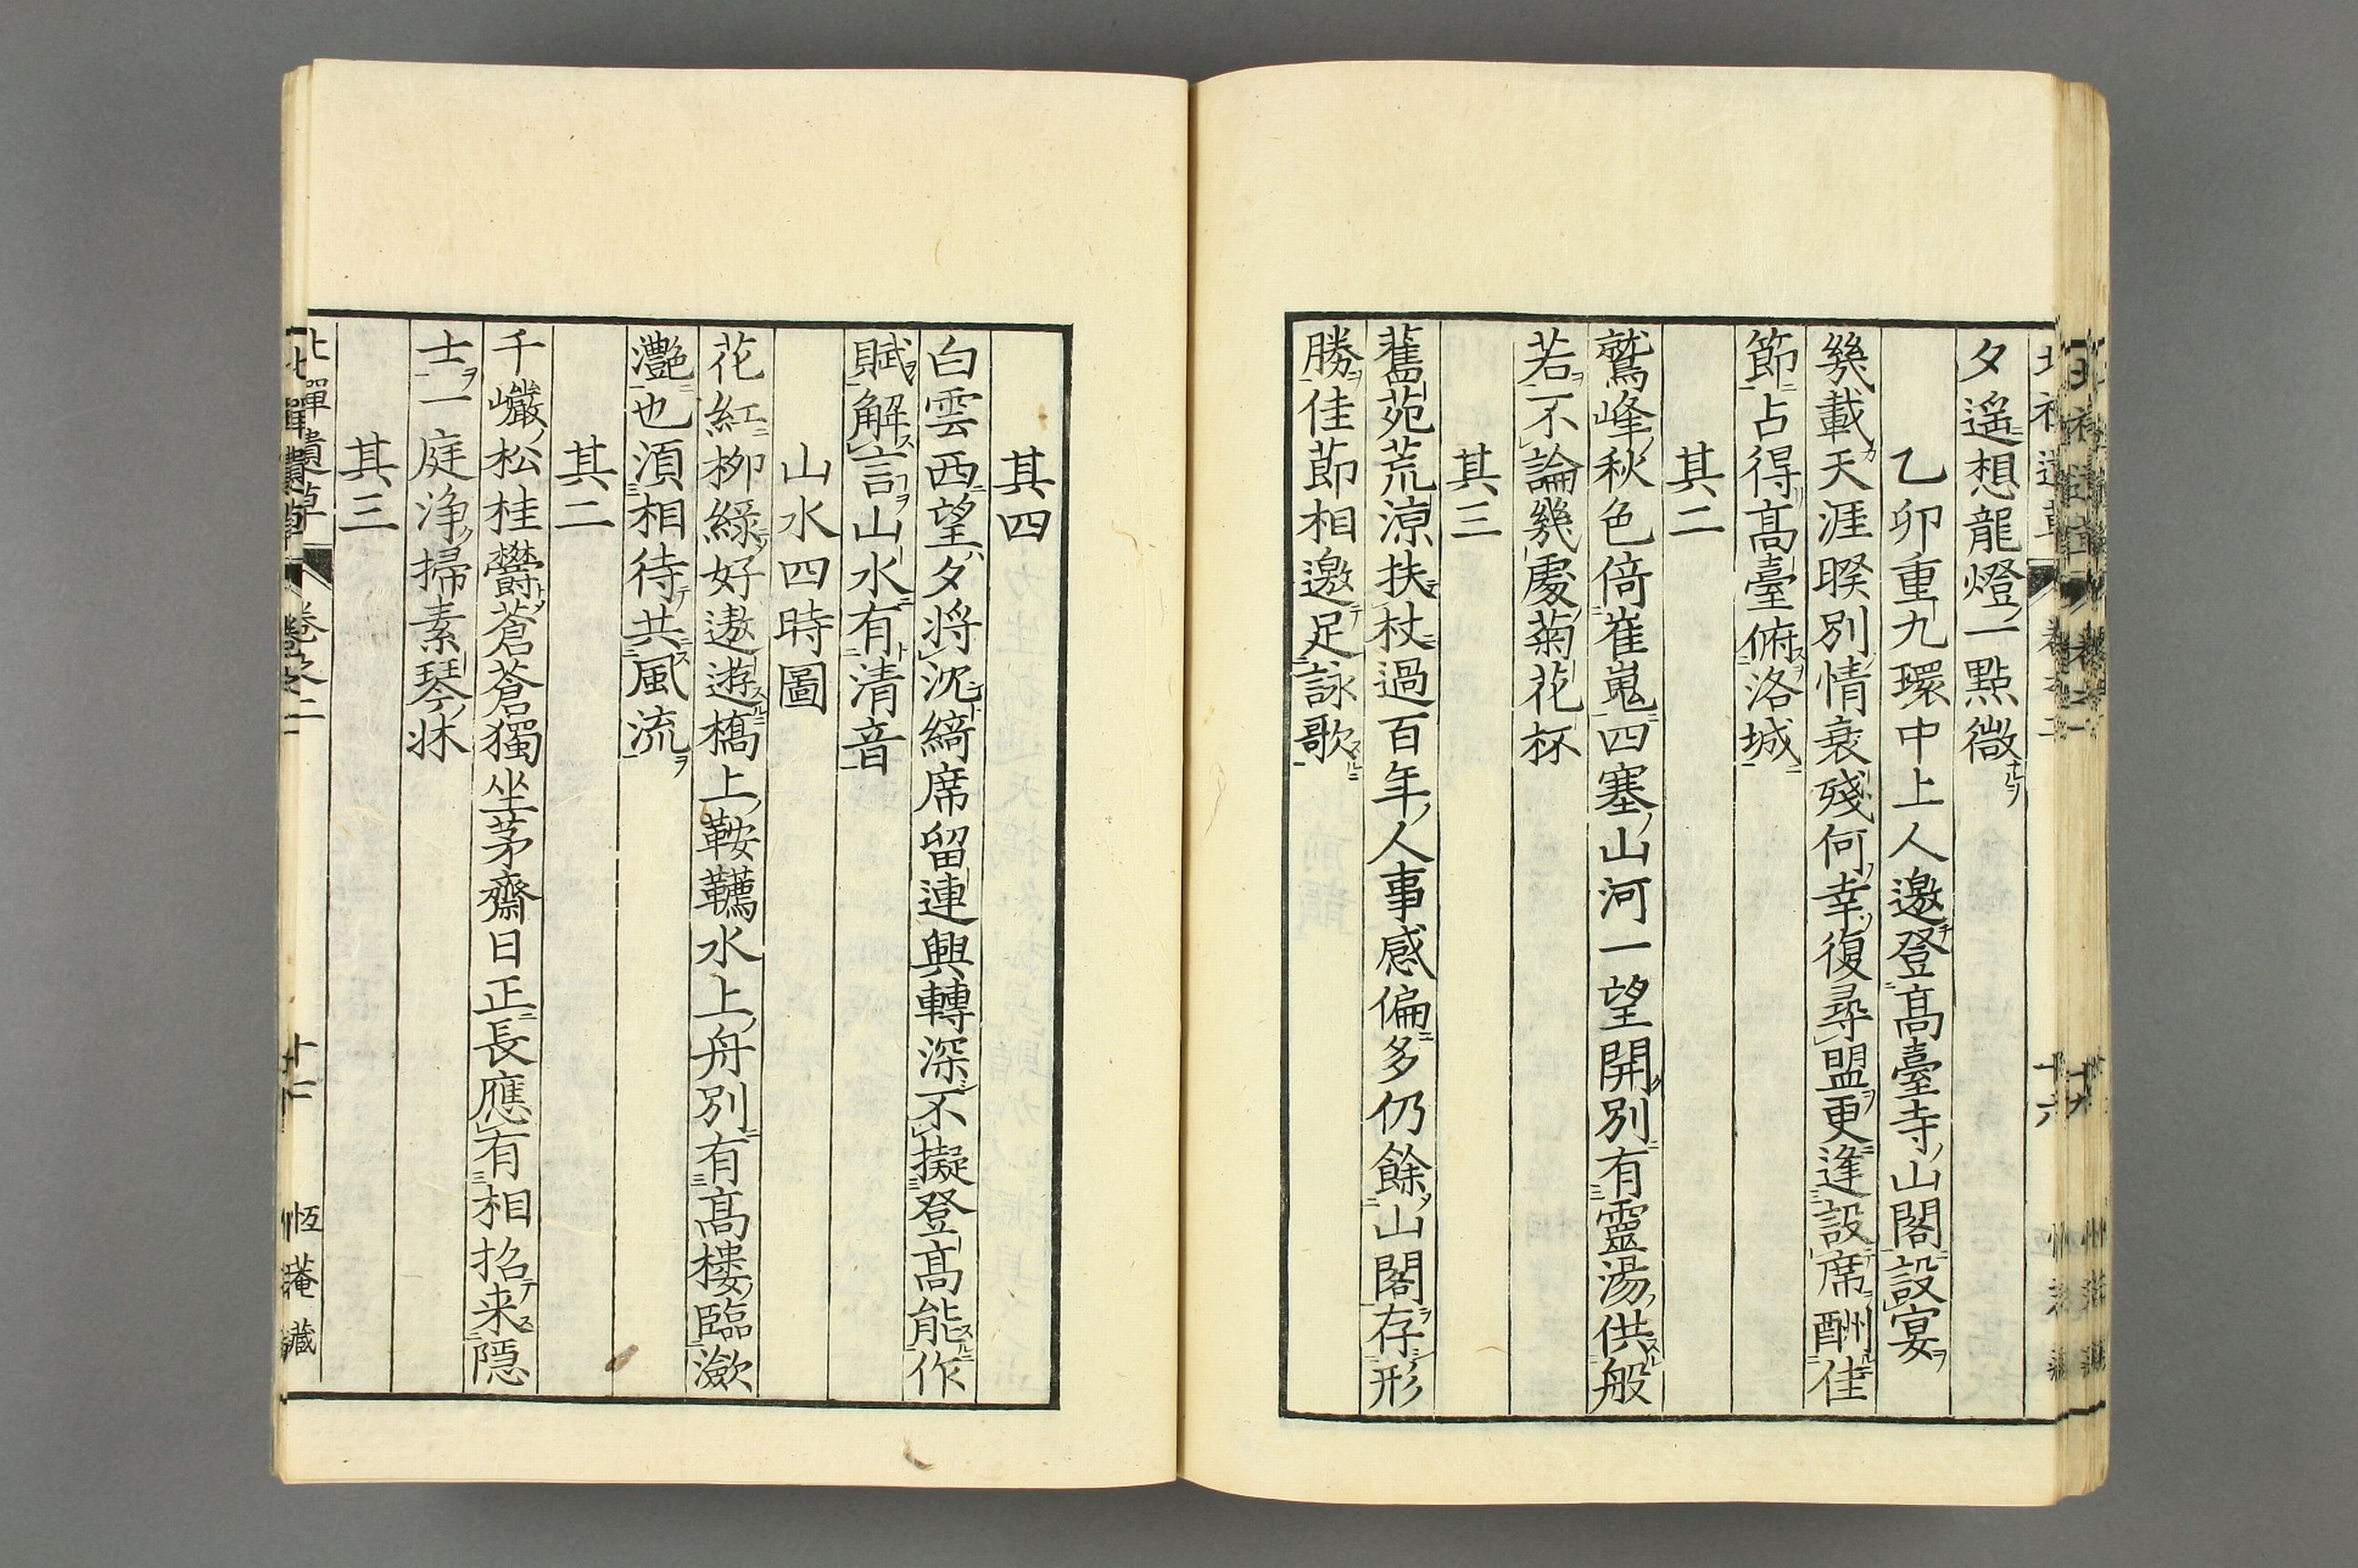 夕遥想龍燈一點微
乙卯重九環中上人邀登髙臺寺山閣設宴
幾載天涯暌別情衰殘何幸復尋盟更逢設席酬佳
節占得髙臺俯洛城
其二
鷲峰秋色倚崔嵬四塞山河一望開別有靈湯供般
若不論幾處菊花杯
其三
舊苑荒涼扶杖過百年人事感偏多仍餘山閣存形
勝佳節相邀足詠歌
其四
白雲西望夕将沈綺席留連興轉深不擬登髙能作
賦解言山水有清音
山水四時圖
花紅柳綠好遨遊橋上鞍韉水上舟別有髙樓臨瀲
灔也湏相待共風流
其二
千巖松桂欝蒼蒼獨坐茅齋日正長應有相招来隠
士一庭浄掃素琴牀
其三
卷之二
恆菴藏